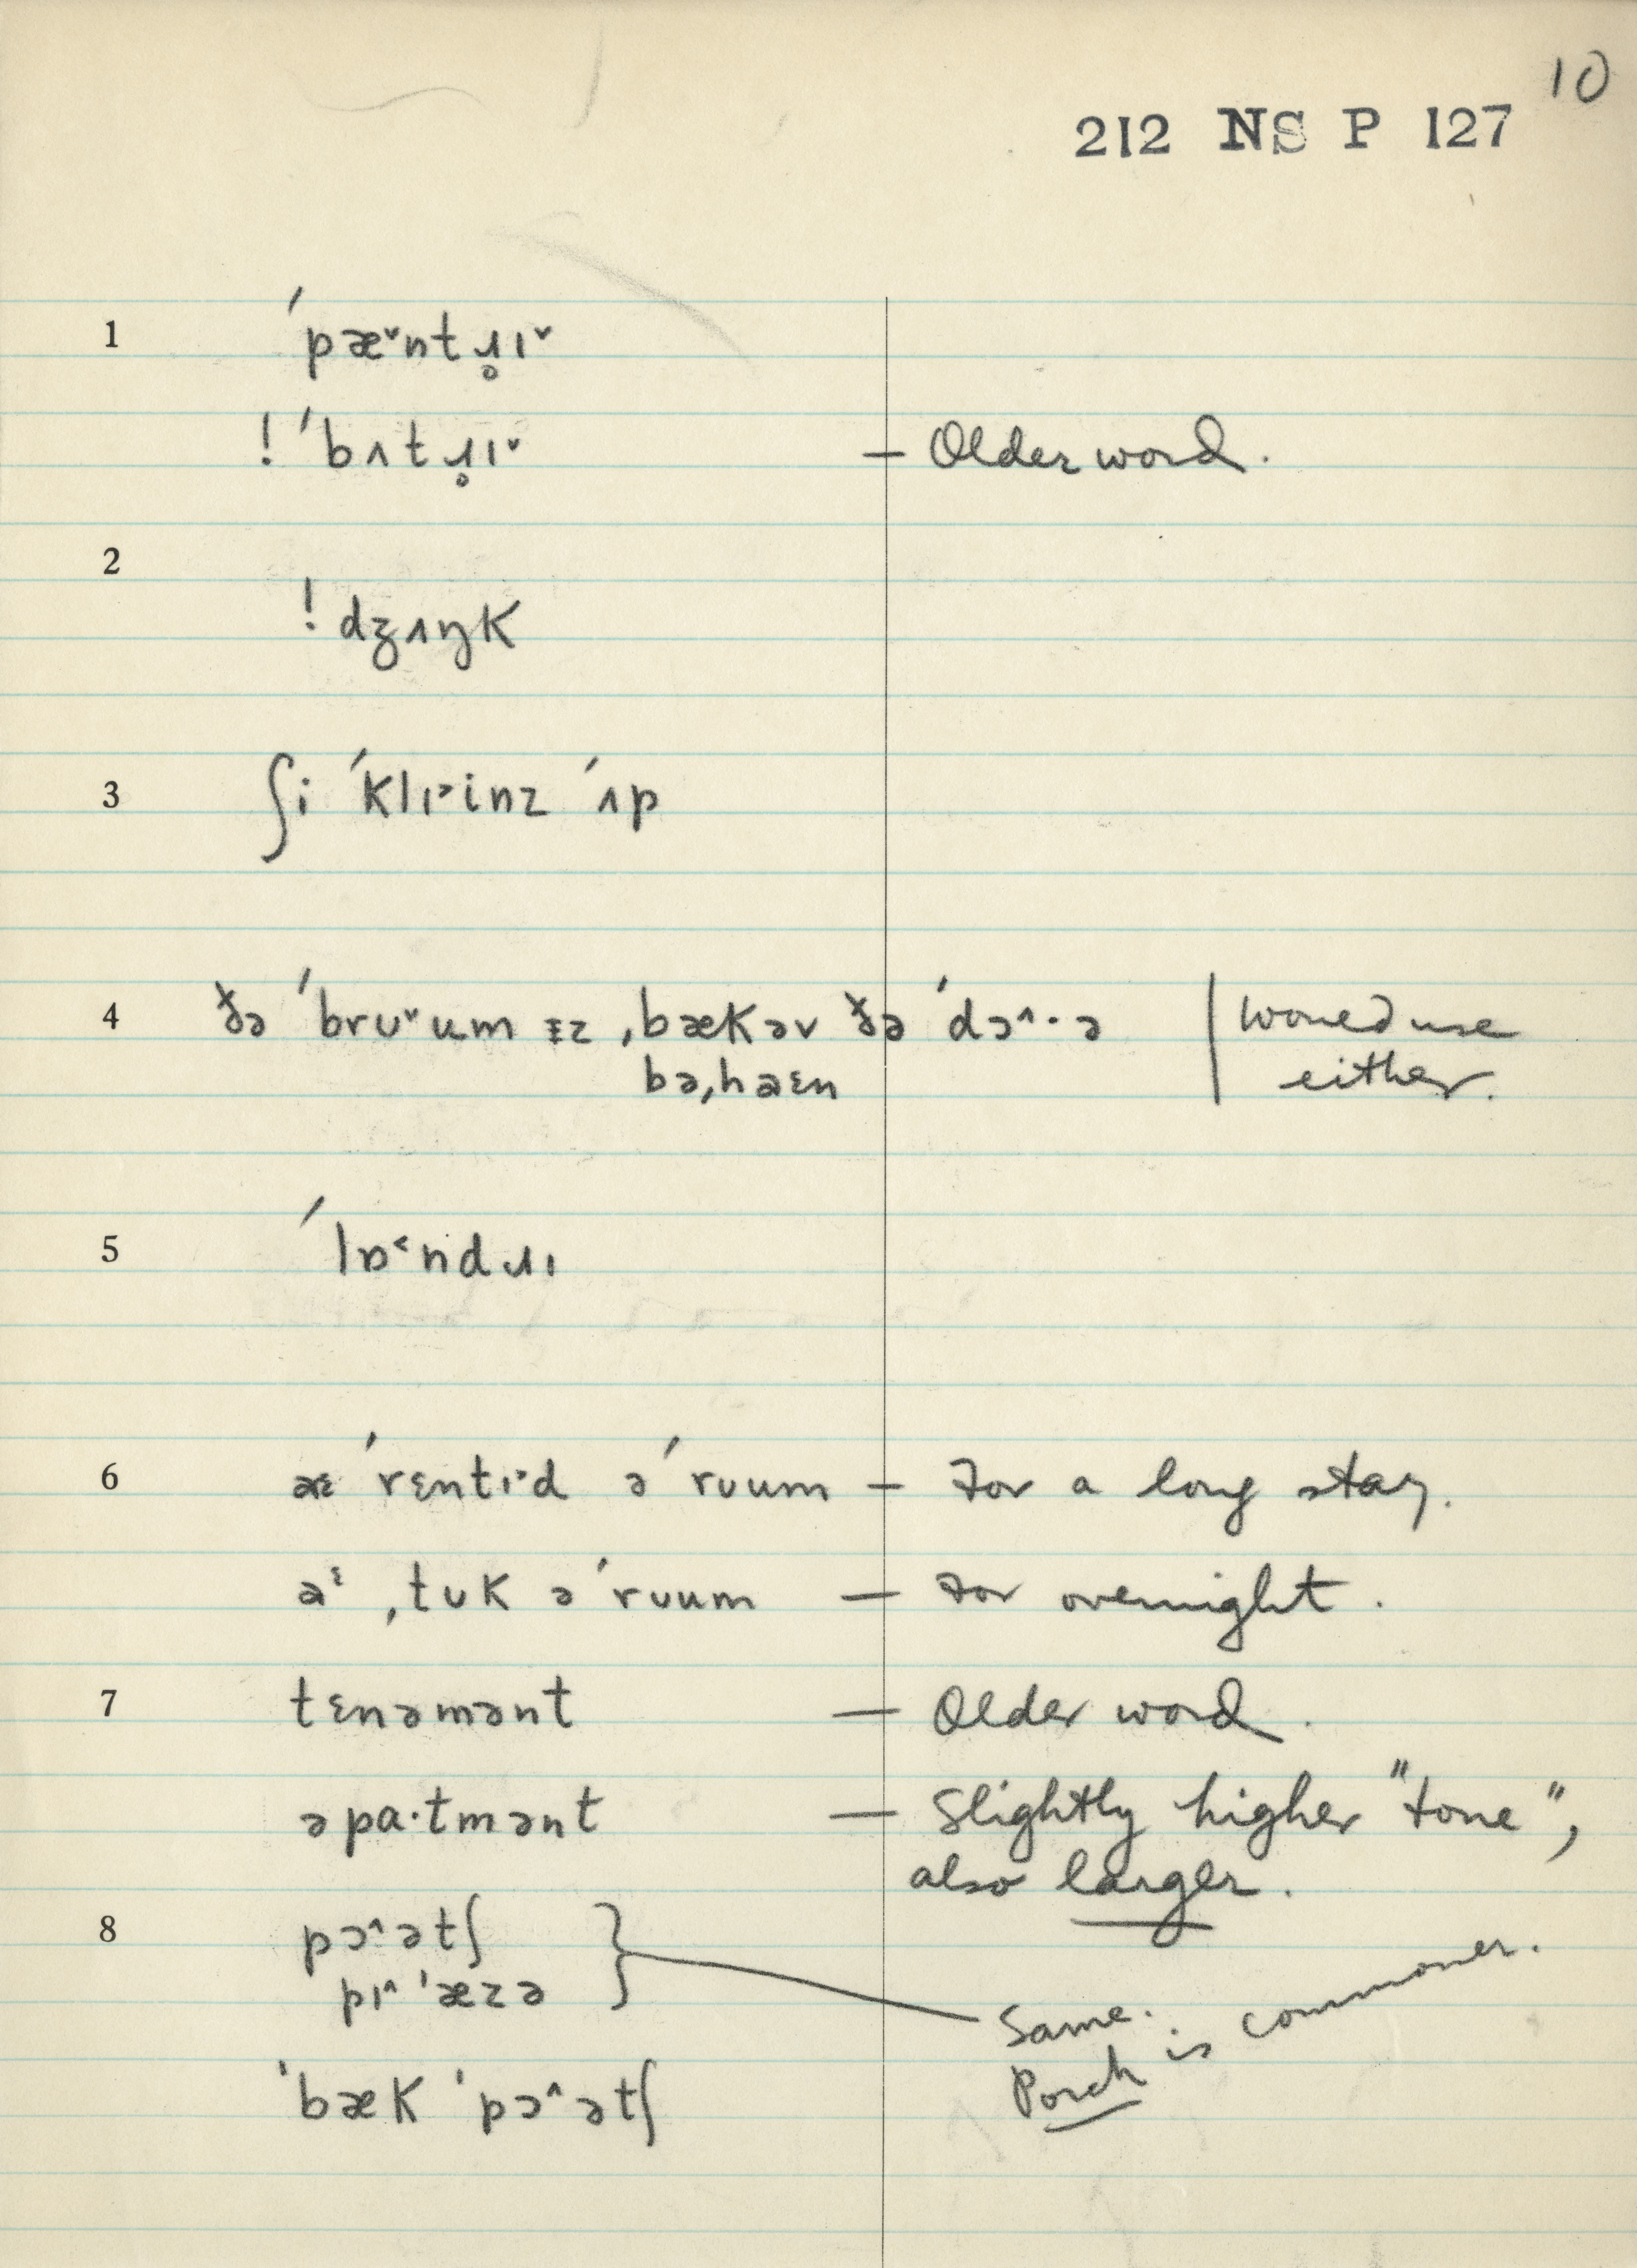 10
212 NS P 127
1 ˊpæˇntɹ̥ɪˇ
! ˊbʌtɹ̥ɪˇ — Older word.
2
! dʒʌŋk
3 ʃi ˊklɪ˃inz ˊʌp
4 ðə ˊbrʊˇum ɪz ˌbækəv ðə ˊdɔ^·ə | would use
bəˌhaɛn either.
5 ˊlɒ˂ndɹɪ
6 aɛ ˊrɛntɪ˃d əˊruum — For a long stay.
aᵋ ˌtʊk əˊrʊum — For overnight.
7 tɛnəmənt — Older word.
əpa·tmənt — Slightly higher "tone",
also larger.
8 pɔ^ətʃ
pɪ^ˈæzə } Same.
Porch is commoner.
ˈbæk ˈpɔ^ətʃ